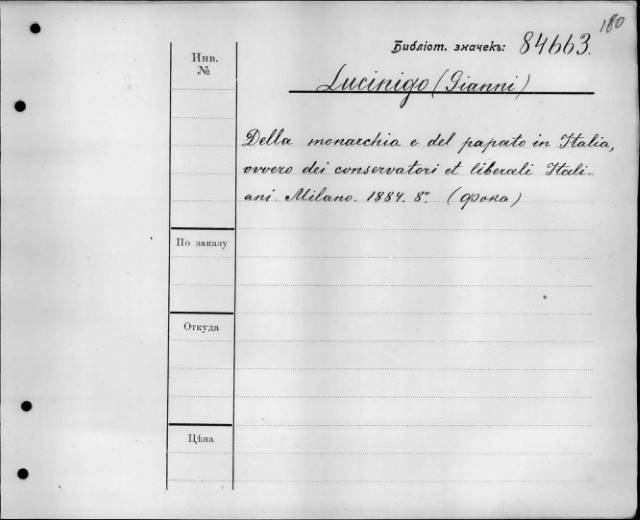 180
Библiот. значекъ: 84663.
Инв.
№
Lucinigo (Gianni)
Della monarchia e del papato in Italia,
ovvero dei conservatori et liberali Itali-
ani. Milano. 1884. 8º. (Фока)
По заказу
Откуда
Цѣна